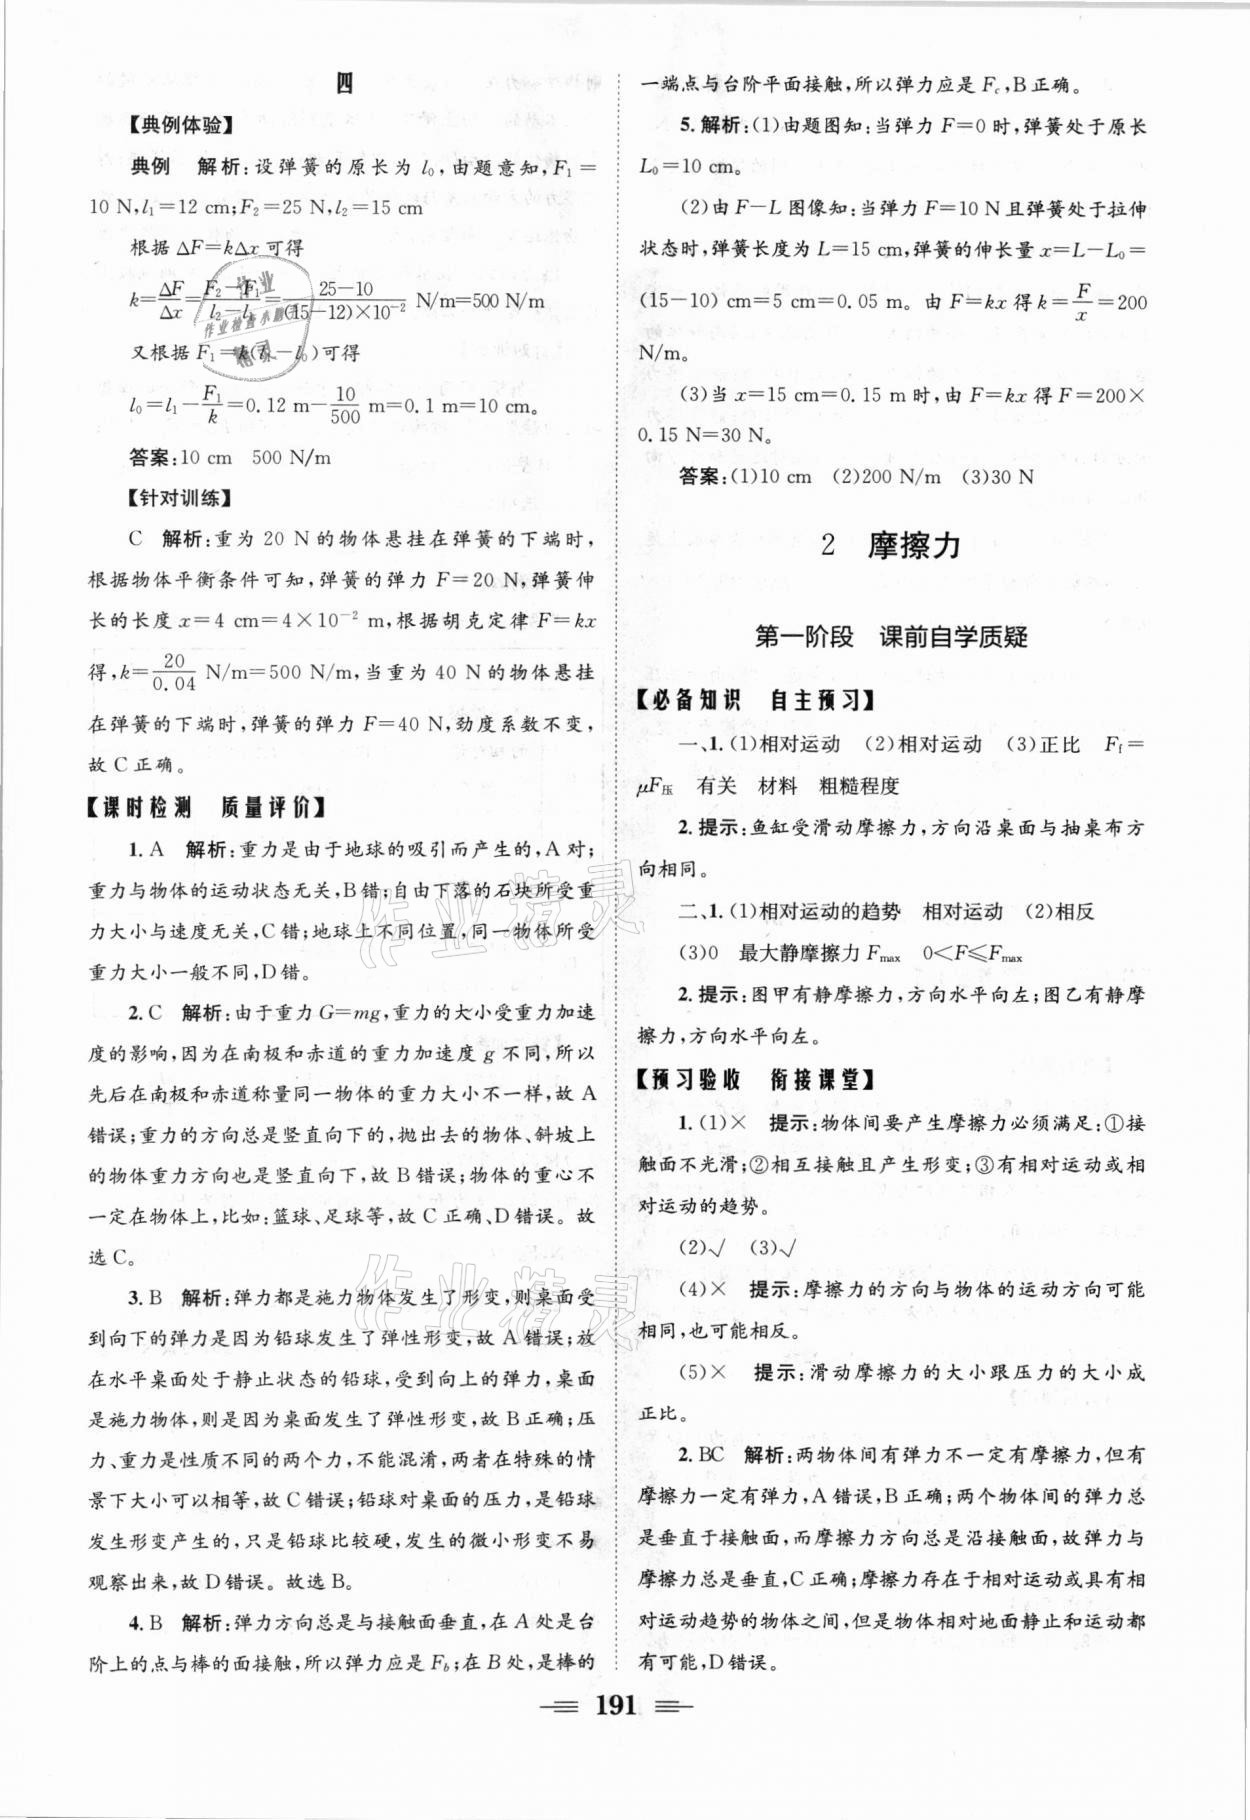 四
【典例体验】
典例 解析:设弹簧的原长为 l₀,由题意知,F₁=
10 N,l₁=12 cm;F₂=25 N,l₂=15 cm
根据 ΔF=kΔx 可得
k=ΔF/Δx=(F₂-F₁)/(l₂-l₁)=(25-10)/((15-12)×10⁻²) N/m=500 N/m
又根据 F₁=k(l₁-l₀)可得
l₀=l₁-F₁/k=0.12 m-10/500 m=0.1 m=10 cm。
答案:10 cm 500 N/m
【针对训练】
C 解析:重为 20 N 的物体悬挂在弹簧的下端时,
根据物体平衡条件可知,弹簧的弹力 F=20 N,弹簧伸
长的长度 x=4 cm=4×10⁻² m,根据胡克定律 F=kx
得,k=20/0.04 N/m=500 N/m,当重为 40 N 的物体悬挂
在弹簧的下端时,弹簧的弹力 F=40 N,劲度系数不变,
故 C 正确。
【课时检测 质量评价】
1. A 解析:重力是由于地球的吸引而产生的,A 对;
重力与物体的运动状态无关,B 错;自由下落的石块所受重
力大小与速度无关,C 错;地球上不同位置,同一物体所受
重力大小一般不同,D 错。
2. C 解析:由于重力 G=mg,重力的大小受重力加速
度的影响,因为在南极和赤道的重力加速度 g 不同,所以
先后在南极和赤道称量同一物体的重力大小不一样,故 A
错误;重力的方向总是竖直向下的,抛出去的物体、斜坡上
的物体重力方向也是竖直向下,故 B 错误;物体的重心不
一定在物体上,比如:篮球、足球等,故 C 正确、D 错误。故
选 C。
3. B 解析:弹力都是施力物体发生了形变,则桌面受
到向下的弹力是因为铅球发生了弹性形变,故 A 错误;放
在水平桌面处于静止状态的铅球,受到向上的弹力,桌面
是施力物体,则是因为桌面发生了弹性形变,故 B 正确;压
力、重力是性质不同的两个力,不能混淆,两者在特殊的情
景下大小可以相等,故 C 错误;铅球对桌面的压力,是铅球
发生形变产生的,只是铅球比较硬,发生的微小形变不易
观察出来,故 D 错误。故选 B。
4. B 解析:弹力方向总是与接触面垂直,在 A 处是台
阶上的点与棒的面接触,所以弹力应是 F_b;在 B 处,是棒的
一端点与台阶平面接触,所以弹力应是 F_c,B 正确。
5. 解析:(1)由题图知:当弹力 F=0 时,弹簧处于原长
L₀=10 cm。
(2)由 F-L 图像知:当弹力 F=10 N 且弹簧处于拉伸
状态时,弹簧长度为 L=15 cm,弹簧的伸长量 x=L-L₀=
(15-10) cm=5 cm=0.05 m。由 F=kx 得 k=F/x=200
N/m。
(3)当 x=15 cm=0.15 m 时,由 F=kx 得 F=200×
0.15 N=30 N。
答案:(1)10 cm (2)200 N/m (3)30 N
2 摩擦力
第一阶段 课前自学质疑
【必备知识 自主预习】
一、1. (1)相对运动 (2)相对运动 (3)正比 F_f=
μF压 有关 材料 粗糙程度
2. 提示:鱼缸受滑动摩擦力,方向沿桌面与抽桌布方
向相同。
二、1. (1)相对运动的趋势 相对运动 (2)相反
(3)0 最大静摩擦力 F_max 0<F≤F_max
2. 提示:图甲有静摩擦力,方向水平向左;图乙有静摩
擦力,方向水平向左。
【预习验收 衔接课堂】
1. (1)× 提示:物体间要产生摩擦力必须满足:①接
触面不光滑;②相互接触且产生形变;③有相对运动或相
对运动的趋势。
(2)√ (3)√
(4)× 提示:摩擦力的方向与物体的运动方向可能
相同,也可能相反。
(5)× 提示:滑动摩擦力的大小跟压力的大小成
正比。
2. BC 解析:两物体间有弹力不一定有摩擦力,但有
摩擦力一定有弹力,A 错误,B 正确;两个物体间的弹力总
是垂直于接触面,而摩擦力方向总是沿接触面,故弹力与
摩擦力总是垂直,C 正确;摩擦力存在于相对运动或具有相
对运动趋势的物体之间,但是物体相对地面静止和运动都
有可能,D 错误。
191
作业
作业检查小助手
精灵
作业精灵
作业精灵